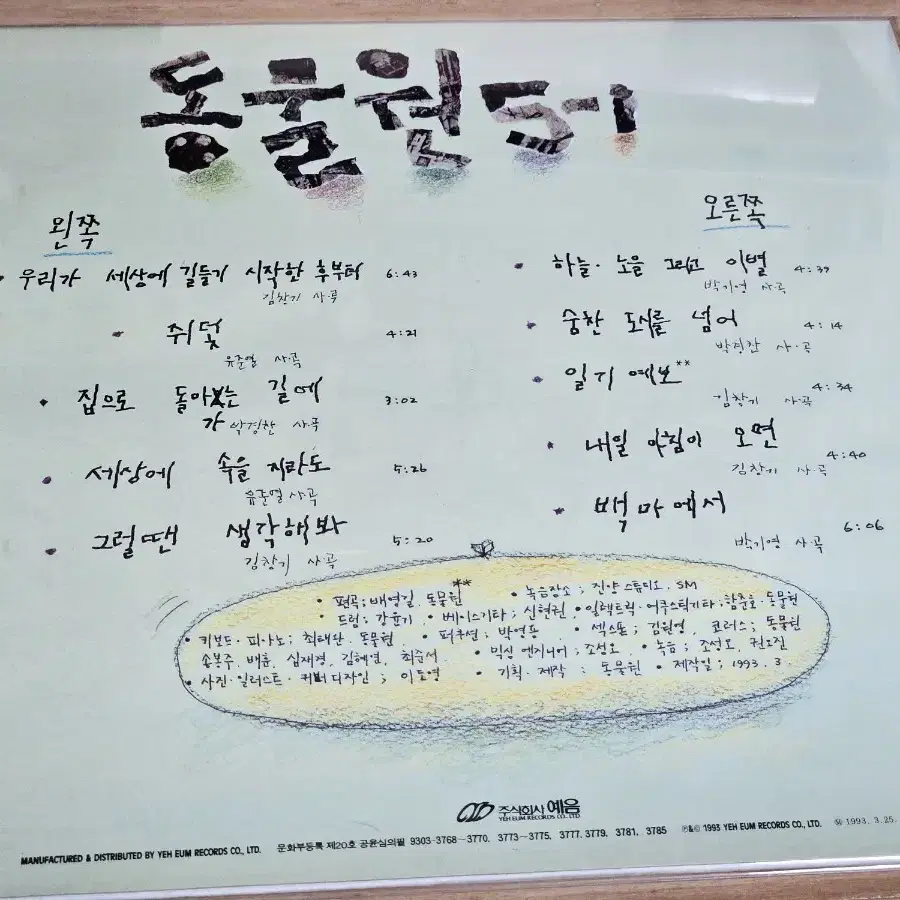 동물원 5-1
왼쪽
• 우리가 세상에 길들기 시작한 후부터 6:43
김창기 사·곡
• 쥐덫 4:21
유준열 사·곡
• 집으로 돌아는 길에 3:02
가 박경찬 사·곡
• 세상에 속을 지라도 5:26
유준열 사·곡
• 그럴땐 생각해봐 5:20
김창기 사·곡
오른쪽
• 하늘·노을 그리고 이별 4:39
박기영 사·곡
• 숨찬 도시를 넘어 4:14
박경찬 사·곡
• 일기 예보** 4:34
김창기 사·곡
• 내일 아침이 오면 4:40
김창기 사·곡
• 백마에서 6:06
박기영 사·곡
• 편곡; 배영길, 동물원** • 녹음장소; 진양 스튜디오, SM
• 드럼; 강윤기 • 베이스기타; 신현권, • 일렉트릭·어쿠스틱기타; 함춘호·동물원
• 키보드·피아노; 최태완, 동물원, • 퍼쿠션; 박영용 • 섹스폰; 김원영, 코러스; 동물원
송봉주, 배훈, 심재경, 김혜연, 최승서 • 믹싱 엔지니어; 조성오 • 녹음; 조성오,
• 사진·일러스트·커버디자인; 이도영 • 기획·제작 : 동물원 • 제작일; 1993. 3.
주식회사 예음
YEH EUM RECORDS CO., LTD.
MANUFACTURED & DISTRIBUTED BY YEH EUM RECORDS CO., LTD. 문화부등록 제20호 공윤심의필 9303-3768~3770, 3773~3775, 3777, 3779, 3781, 3785 ℗&© 1993 YEH EUM RECORDS CO., LTD. 1993. 3. 25.